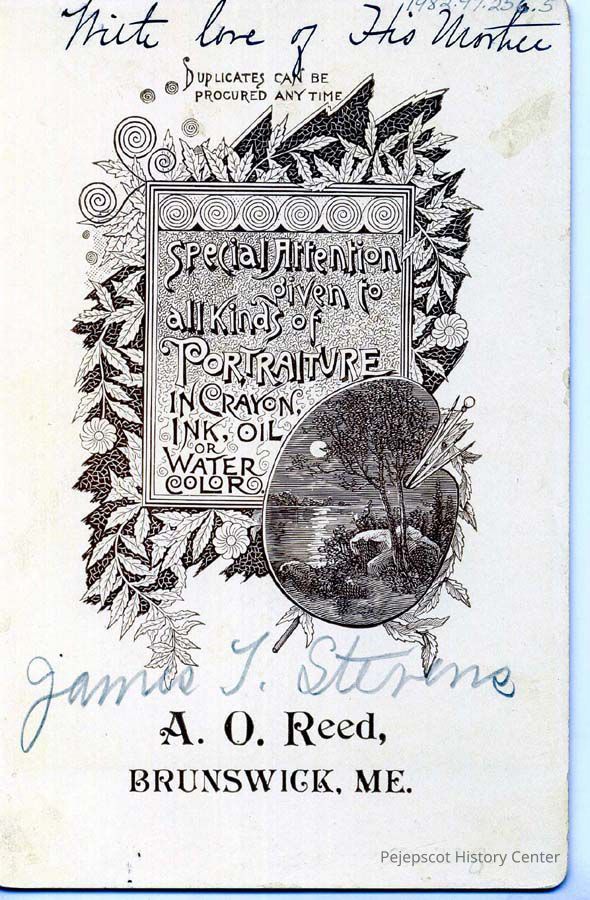 1982.97.256.5
With love of His Mother
DUPLICATES CAN BE
PROCURED ANY TIME
Special Attention
given to
all Kinds of
PORTRAITURE
IN CRAYON,
INK, OIL
OR
WATER
COLOR.
James T. Stevens
A. O. Reed,
BRUNSWICK, ME.
Pejepscot History Center